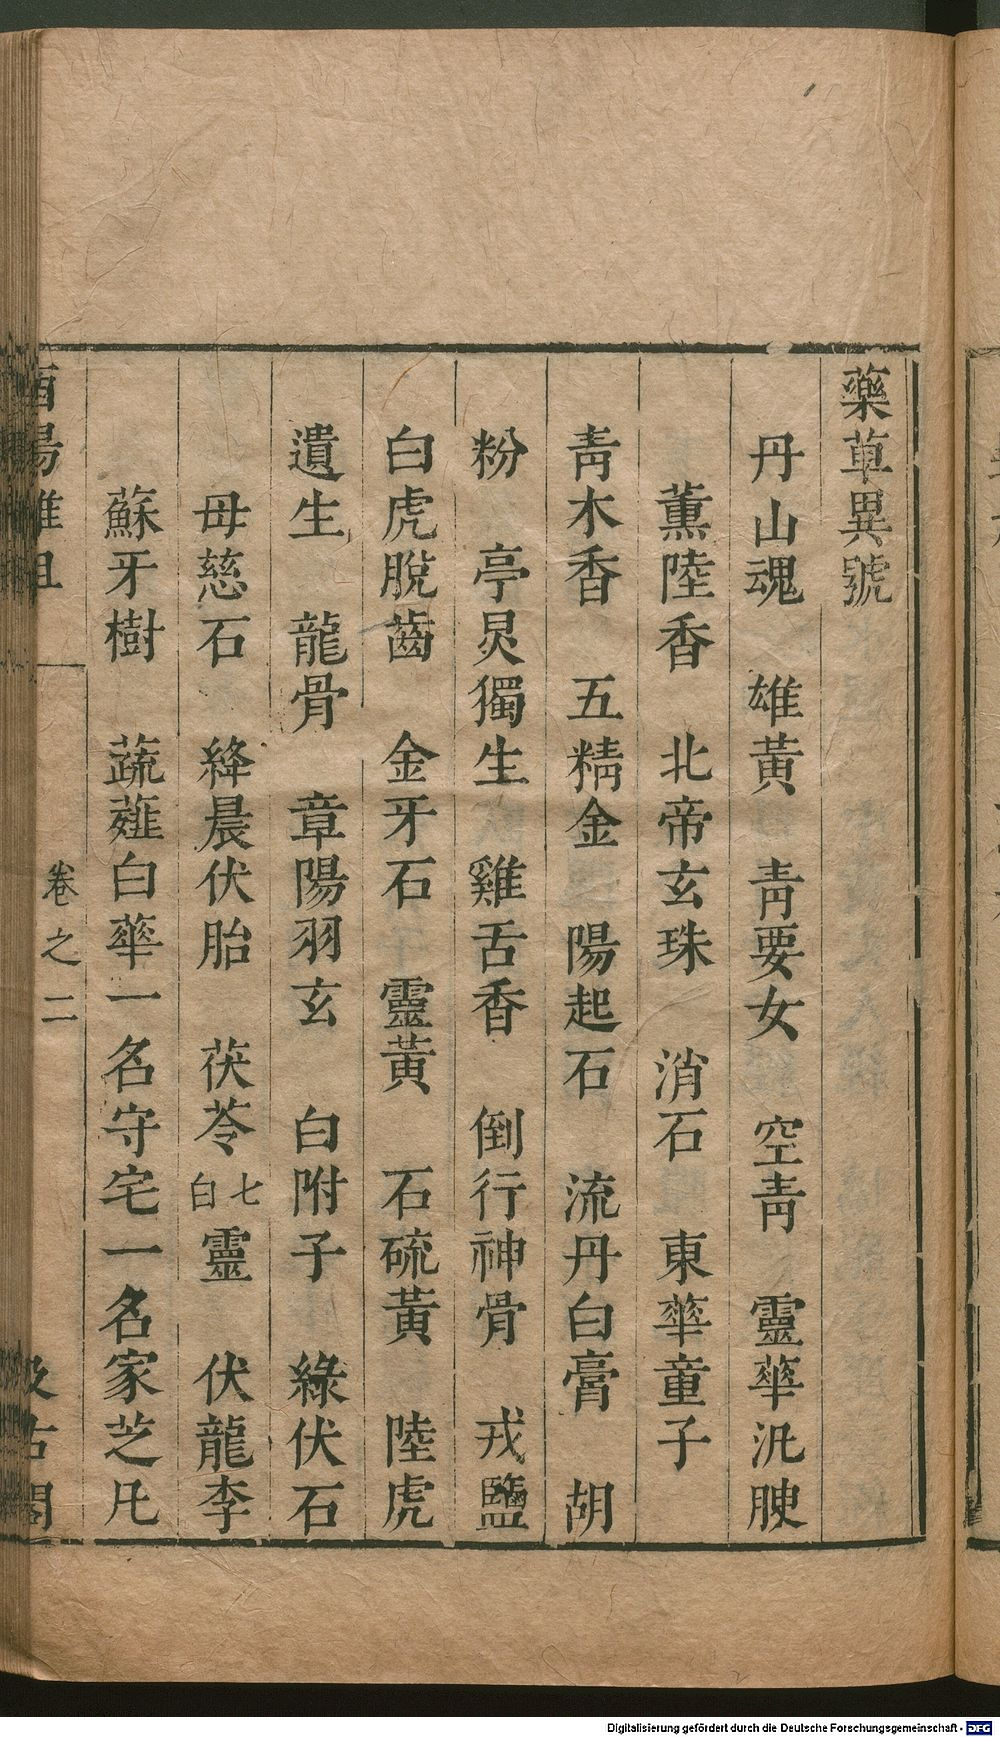 藥草異號
丹山魂　雄黃　靑要女　空靑　靈華汎腴
薰陸香　北帝玄珠　消石　東華童子
靑木香　五精金　陽起石　流丹白膏　胡
粉　亭炅獨生　雞舌香　倒行神骨　戎鹽
白虎脫齒　金牙石　靈黃　石硫黃　陸虎
遺生　龍骨　章陽羽玄　白附子　綠伏石
母慈石　絳晨伏胎　茯苓　七白靈　伏龍李
蘇牙樹　蔬薤白華一名守宅一名家芝凡
酉陽雜俎　卷之二　汲古閣
Digitalisierung gefördert durch die Deutsche Forschungsgemeinschaft - DFG